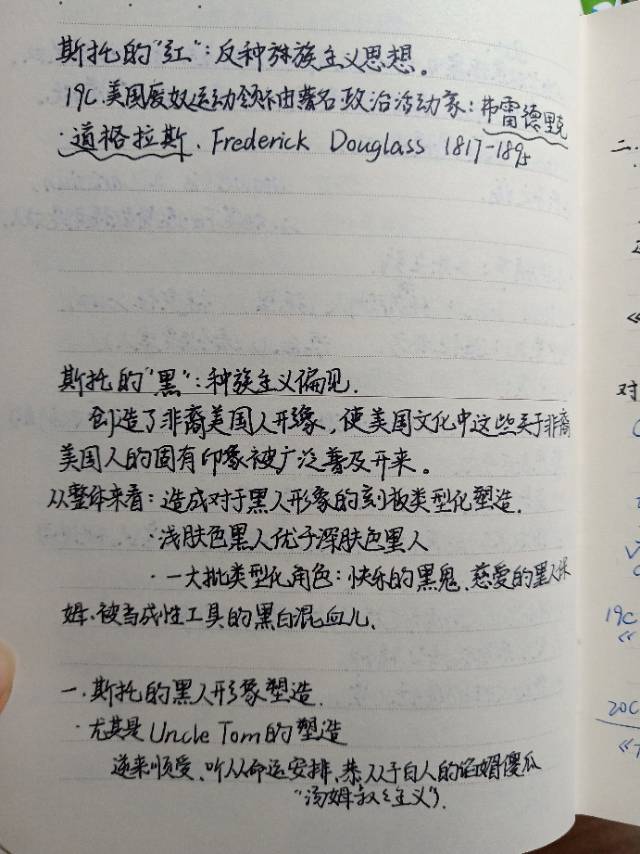 斯托的"红"：反种族主义思想。
19C.美国废奴运动领袖著名政治活动家：弗雷德里克
·道格拉斯. Frederick Douglass 1817-1895
斯托的"黑"：种族主义偏见.
创造了非裔美国人形象，使美国文化中这些关于非裔
美国人的固有印象被广泛普及开来。
从整体来看：造成对于黑人形象的刻板类型化塑造.
·浅肤色黑人优于深肤色黑人
·一大批类型化角色：快乐的黑鬼、慈爱的黑人保
姆、被当成性工具的黑白混血儿.
一.斯托的黑人形象塑造.
·尤其是Uncle Tom的塑造
逆来顺受、听从命运安排，恭从于白人的谄媚傻瓜
"汤姆叔叔主义").
二.
对
19C
20C